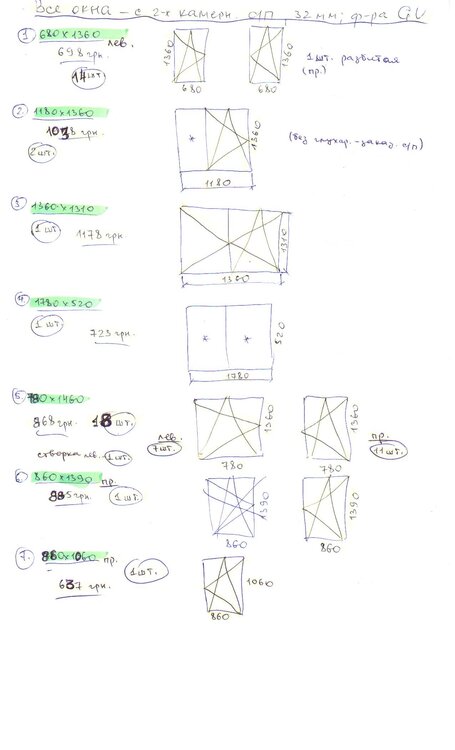 Все окна – с 2-х камерн. с/п, 32 мм; ф-ра GU
1. 680 x 1360 лев.
698 грн.
14 шт.
1360
680
1360
680
1 шт. разбитая
(пр.)
2. 1180 x 1360
1078 грн.
2 шт.
*
1360
1180
(без глухар. – заказ. с/п)
3. 1360 x 1310
1 шт.
1178 грн.
1310
1360
4. 1780 x 520
1 шт.
723 грн.
* *
520
1780
5. 780 x 1460
868 грн. 18 шт.
створка лев. 1 шт.
лев.
7 шт.
1360
780
1360
780
пр.
11 шт.
6. 860 x 1390 пр.
885 грн. 1 шт.
1390
860
1390
860
7. 860 x 1060 пр.
1 шт.
637 грн.
1060
860